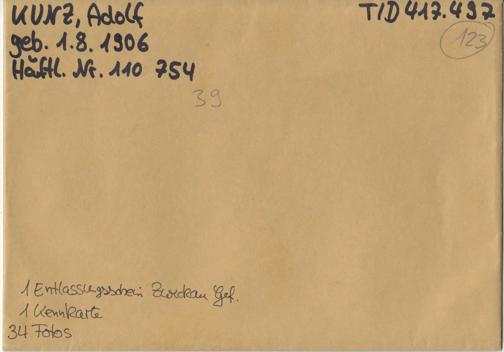 KUNZ, Adolf
TID 417.497
geb. 1.8. 1906
123
Häftl. Nr. 110 754
39
1 Entlassungsschein Zwickau Gef.
1 Kennkarte
34 Fotos